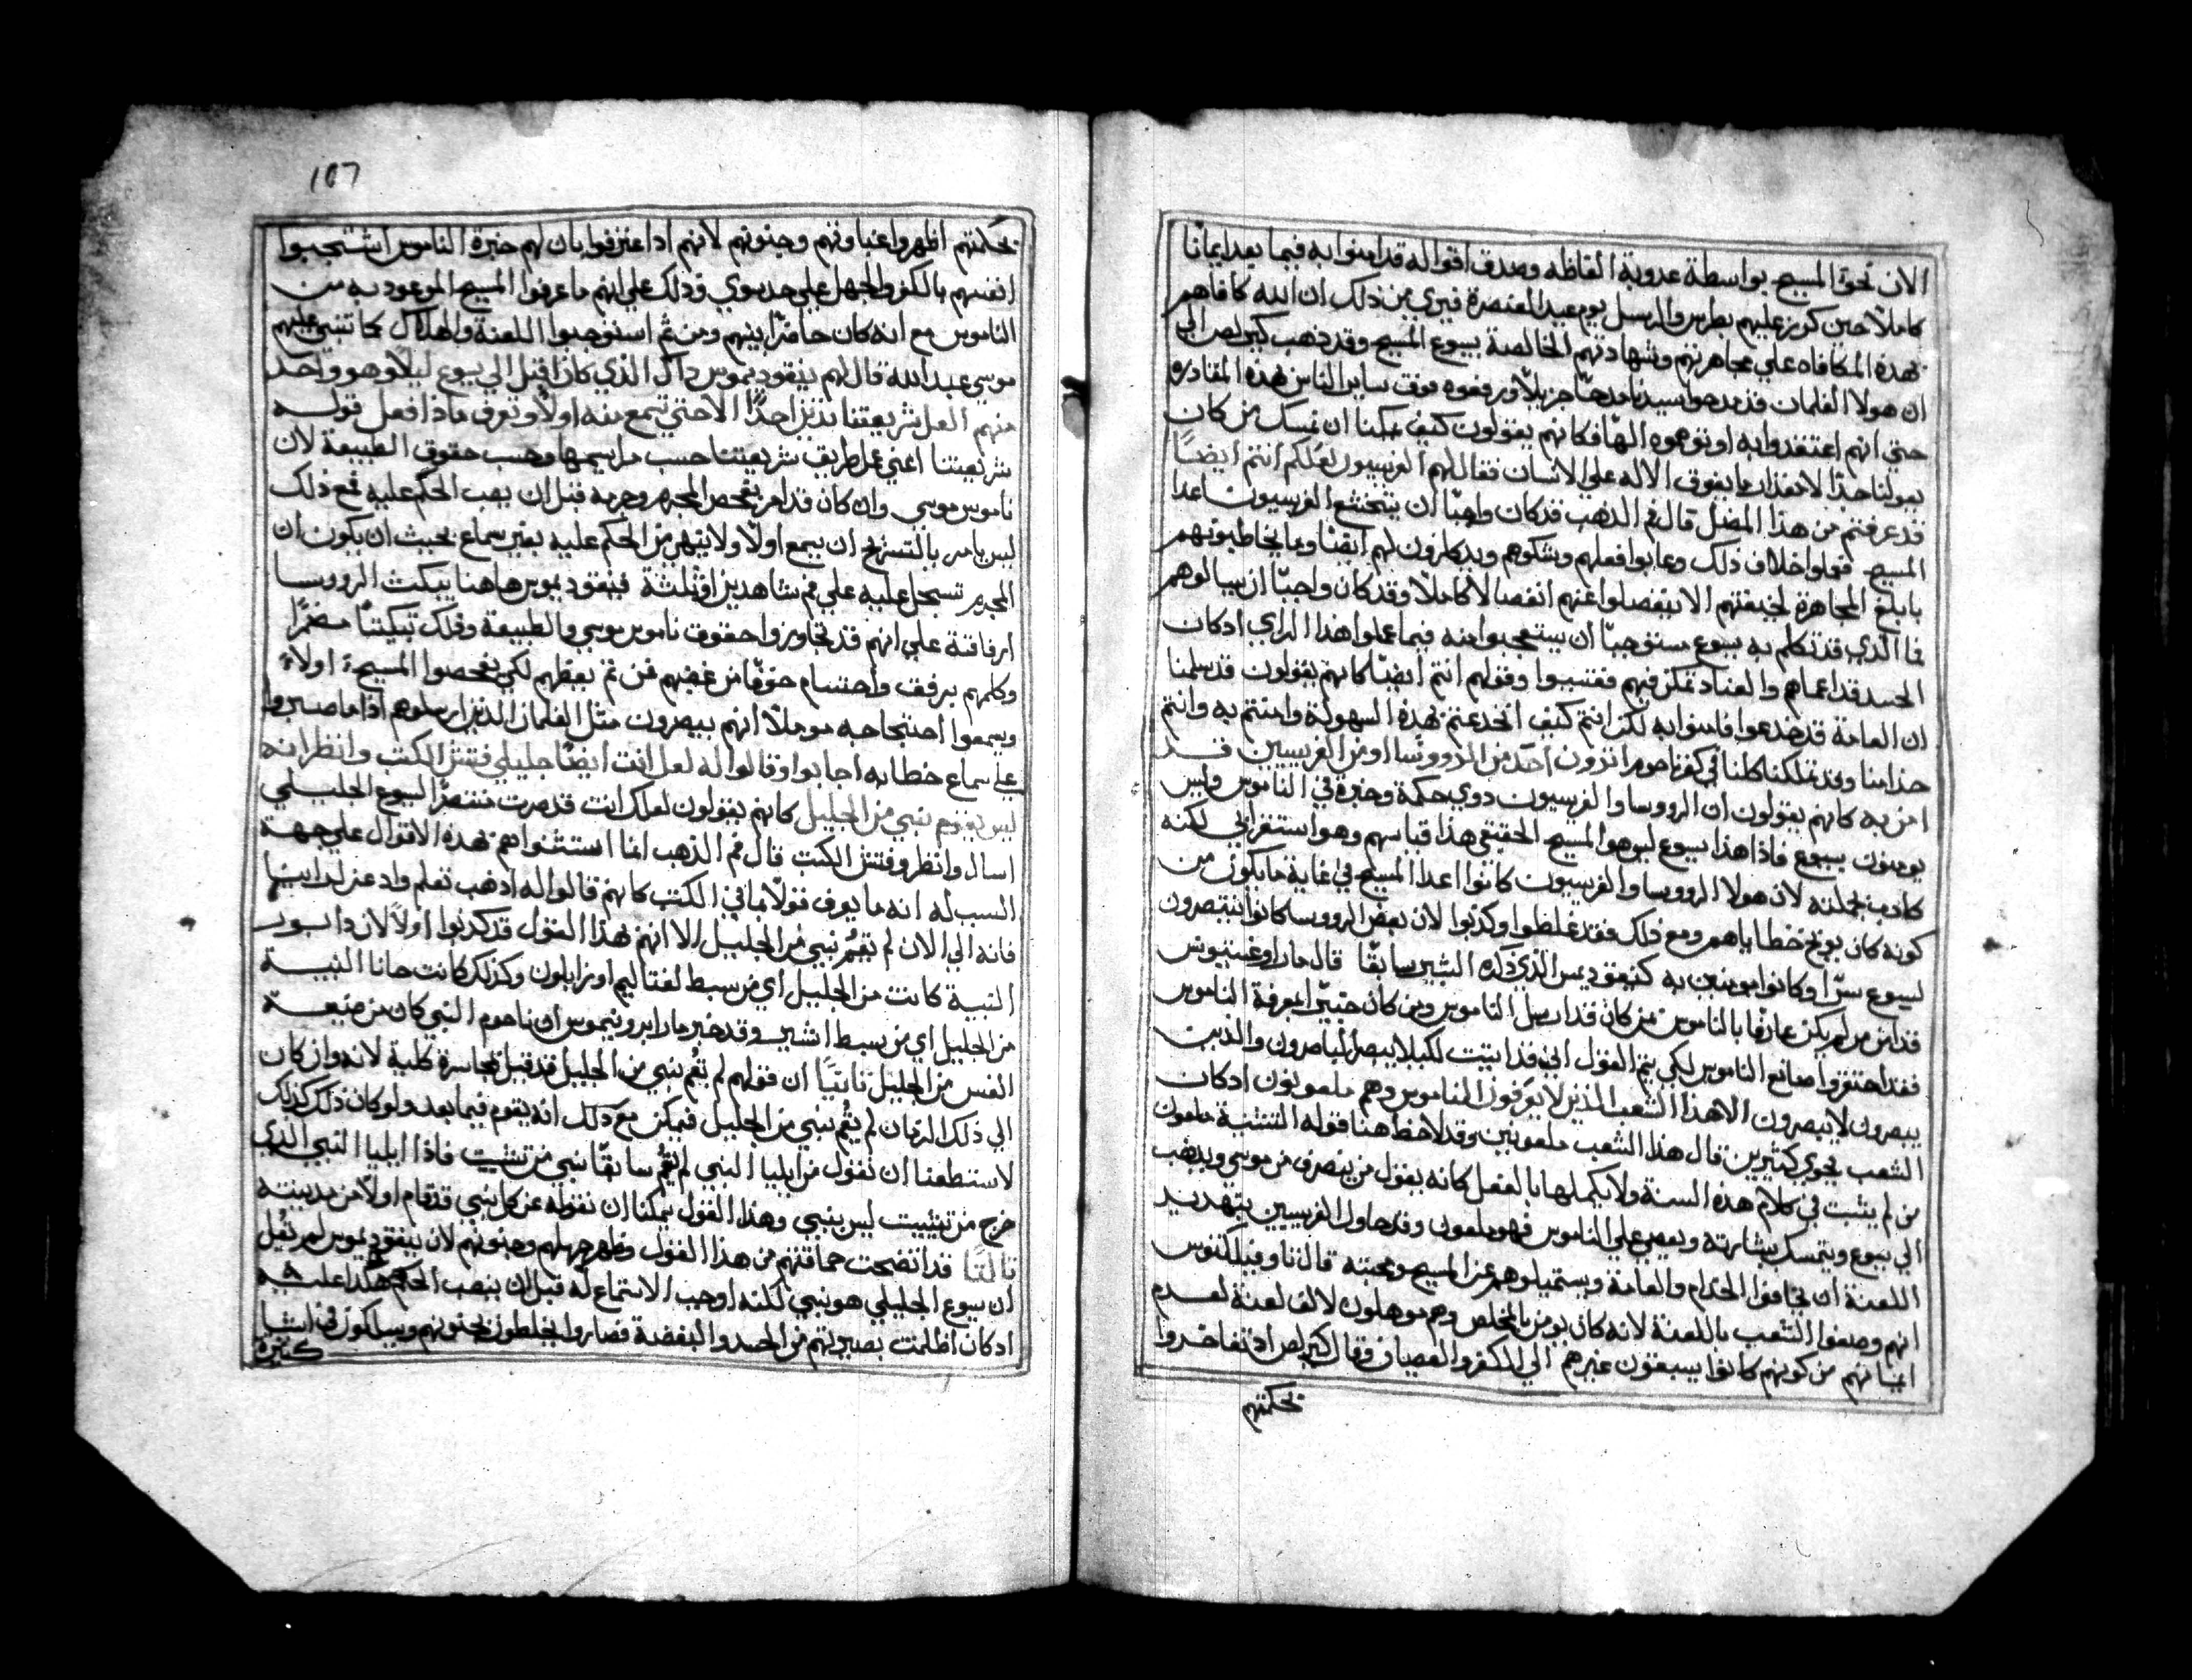 الان نحو المسيح بواسطة عدوبة الفاظه وصدق اقواله قد امنوا به فيما بعد ايمانًا
كاملاً حين كرز عليهم بطرس والرسل يوم عيد العنصرة فيري من ذلك ان الله كافاهم
بهذه المكافاه علي مجاهرتهم وشهادتهم الخالصة بيسوع المسيح وقد ذهب كيرلص الي
ان هولا الغلمان قد مدحوا سيدنا مدحًا جزيلاً ورفعوه فوق ساير الناس بهذه المقادره
حتي انهم اعتقدوا به او توهموه الهًا فكانهم يقولون كيف يمكنا ان نمسك من كان
يفوقنا جدًا لا بمقدار ما يفوق الاله علي الانسان فقال لهم الفريسيون لعلكم انتم ايضًا
قد عرفتم من هذا المضل قال فم الذهب قد كان واجبًا ان يتخشع الفريسيون اعدا
المسيح فعملوا خلاف ذلك وعابوا فعلهم وشكوهم ويدكرون لهم ايضًا وما يخاطبونهم
بابلغ المجاهرة لخيفتهم الا ينفصلوا عنهم انفصالاً كاملاً وقد كان واجبًا ان يسالوهم
فما الذي قد تكلم به يسوع مستوجبًا ان يستعجبوا منه فيما عملوا هذا الراي ادكان
الحسد قد اعماهم والعناد تمكن فيهم فقتسوا وقولهم انتم ايضًا كانهم يقولون قد سلمنا
ان العامة قد خدعوا فامنوا به لكن انتم كيف انخدعتم بهذه السهولة وامنتم به وانتم
خدامنا وقد تملكنا كلنا في كفرناحوم اترون احد من الرووسا او من الفريسيين قد
امن به كانهم يقولون ان الرووسا والفريسيون دوي حكمة وخبرة في الناموس وليس
يومنون بيسوع فاذا هذا يسوع ليس هو المسيح الحقيقي هذا قياسهم وهو استقرائي لكنه
كادب بجملته لان هولا الرووسا والفريسيون كانوا اعدا المسيح في غاية ما يكون من
كونه كان يوبخ خطاياهم ومع ذلك فقد غلطوا وكذبوا لان بعض الرووسا كانوا ينتصرون
ليسوع سرًا وكانوا مومنين به كنيقوديمس الذي ذكره البشير سابقًا قال مار اوغسينوس
قد امن من لم يكن عارفًا بالناموس من كان قد ارسل الناموس ومن كان خبيرًا بمعرفة الناموس
فقد احتقروا صانع الناموس لكي يتم القول اني قد اتيت لكيلا يبصر المبصرون والذين
يبصرون لا يبصرون الا هذا الشعب الذين لا يعرفون الناموس وهم ملعونون ادكان
الشعب يحوي كثيرين قال هذا الشعب ملعونين وقد لاحظ هنا قوله التثنية ملعون
من لم يثبت في كلام هذه السنة ولا يكملها بالفعل كانه يقول من ينصرف من موسي ويذهب
الي يسوع ويتمسك ببشارته ويعصي علي الناموس فهو ملعون وقد حاول الفريسيين بتهديد
اللعنة ان يخافوا الخدام والعامة ويستميلوهم عن المسيح ومحبته قال تاوفيلكتوس
انهم وصفوا الشعب باللعنة لانه كان يومن بالمخلص وهم موهلون لالف لعنة لعدم
ايمانهم من كونهم كانوا يسبقون غيرهم الي الكفر والعصيان وقال كيرلص اد تفاخروا
بحكمتهم
107
بحكمتهم اظهروا غباوتهم وجنونهم لانهم ادا اعترفوا بان لهم خبرة الناموس اشتجبوا
انفسهم بالكفر والجهل علي حد سوي وذلك علي انهم ما عرفوا المسيح الموعود به من
الناموس مع انه كان حاضرًا بينهم ومن ثم استوجبوا اللعنة والهلاك كما تنبي عليهم
موسي عبد الله قال لهم نيقوديموس داك الذي كان اقبل الي يسوع ليلاً وهو واحد
منهم العل شريعتنا تدين احدًا الا حتي تسمع منه اولاً وتعرف ماذا فعل قوله
شريعتنا اعني عل طريق شريعتنا حسب مراسيمها وحسب حقوق الطبيعة لان
ناموس موسي وان كان قد امر بفحص المجرم وجرمه قبل ان يصب الحكم عليه فمع ذلك
ليس يامر بالتشريح ان يسمع اولاً ولا ينهي من الحكم عليه بغير سماع بحيث ان يكون ان
المجرم تسجل عليه علي فم شاهدين او ثلثة فنيقوديموس هاهنا يبكت الرووسا
ارفاقته علي انهم قد تجاوزوا حقوق ناموس موسي والطبيعة وذلك تبكيتًا مضمرًا
وكلمهم برفق واحتسام خوفًا من غضبهم فمن ثم يعظهم لكي يفحصوا المسيح اولاً
ويسمعوا احتجاجه موملاً انهم يبصرون مثل الغلمان الذين ارسلوهم اذا ما صبروا
علي سماع خطابه اجابوا وقالوا له لعل انت ايضًا جليلي فتش الكتب وانظر انه
ليس يقوم نبي من الجليل كانهم يقولون لعلك انت قد صرت منتصرًا ليسوع الجليلي
اسال وانظر وفتش الكتب قال فم الذهب انما استثنوا هم بهذه الاقوال علي جهة
السب له انه ما يعرف قولاً مما في الكتب كانهم قالوا له اذهب تعلم واد عن لدانتها
فانه الي الان لم يقُم نبي من الجليل الا انهم بهذا القول قد كذبوا اولاً لان دابورر
النبية كانت من الجليل اي من سبط نفتاليم او زابلون وكذلك كانت حانا النبية
من الجليل اي من سبط اشير وقد خبر مار ايرونيموس ان ناحوم النبي كان من ضيعة
القس من الجليل ثانيًا ان قولهم لم يقُم نبي من الجليل قد قيل بجاسرة كلية لانه وان كان
الي ذلك الزمان لم يقُم نبي من الجليل فيمكن مع دلك انه يقوم فيما بعد ولو كان ذلك كذلك
لاستطعنا ان نقول من ايليا النبي لم يقُم سابقًا نبي من تشبيت فاذا ايليا النبي الذي
خرج من تشبيت ليس بنبي وهذا القول يمكنا ان نقوله عن كل نبي قد قام اولاً من مدينته
ثالثًا قد اتضحت حماقتهم من هذا القول وظهر جهلهم وجنونهم لان نيقوديموس لم يقُل
ان يسوع الجليلي هو نبي لكنه اوجب الاستماع له قبل ان ينصب الحكم هكدا عليه
ادكان اظلمت بصيرتهم من الحسد والبغضة فصاروا يخلطون بجنونهم ويسالكون في اشيا
كثيرة